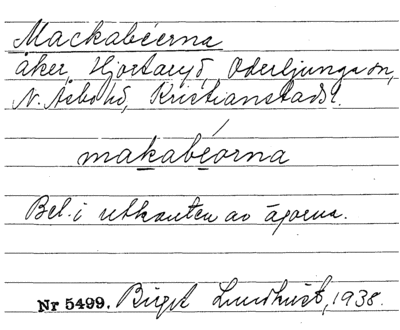 Mackabéerna
åker, Hjortaryd, Oderljunga sn,
N. Åsbo hd, Kristianstads l.
makabéorna
Bel. i utkanten av ägorna.
Nr 5499. Birgit Lundkvist, 1938.